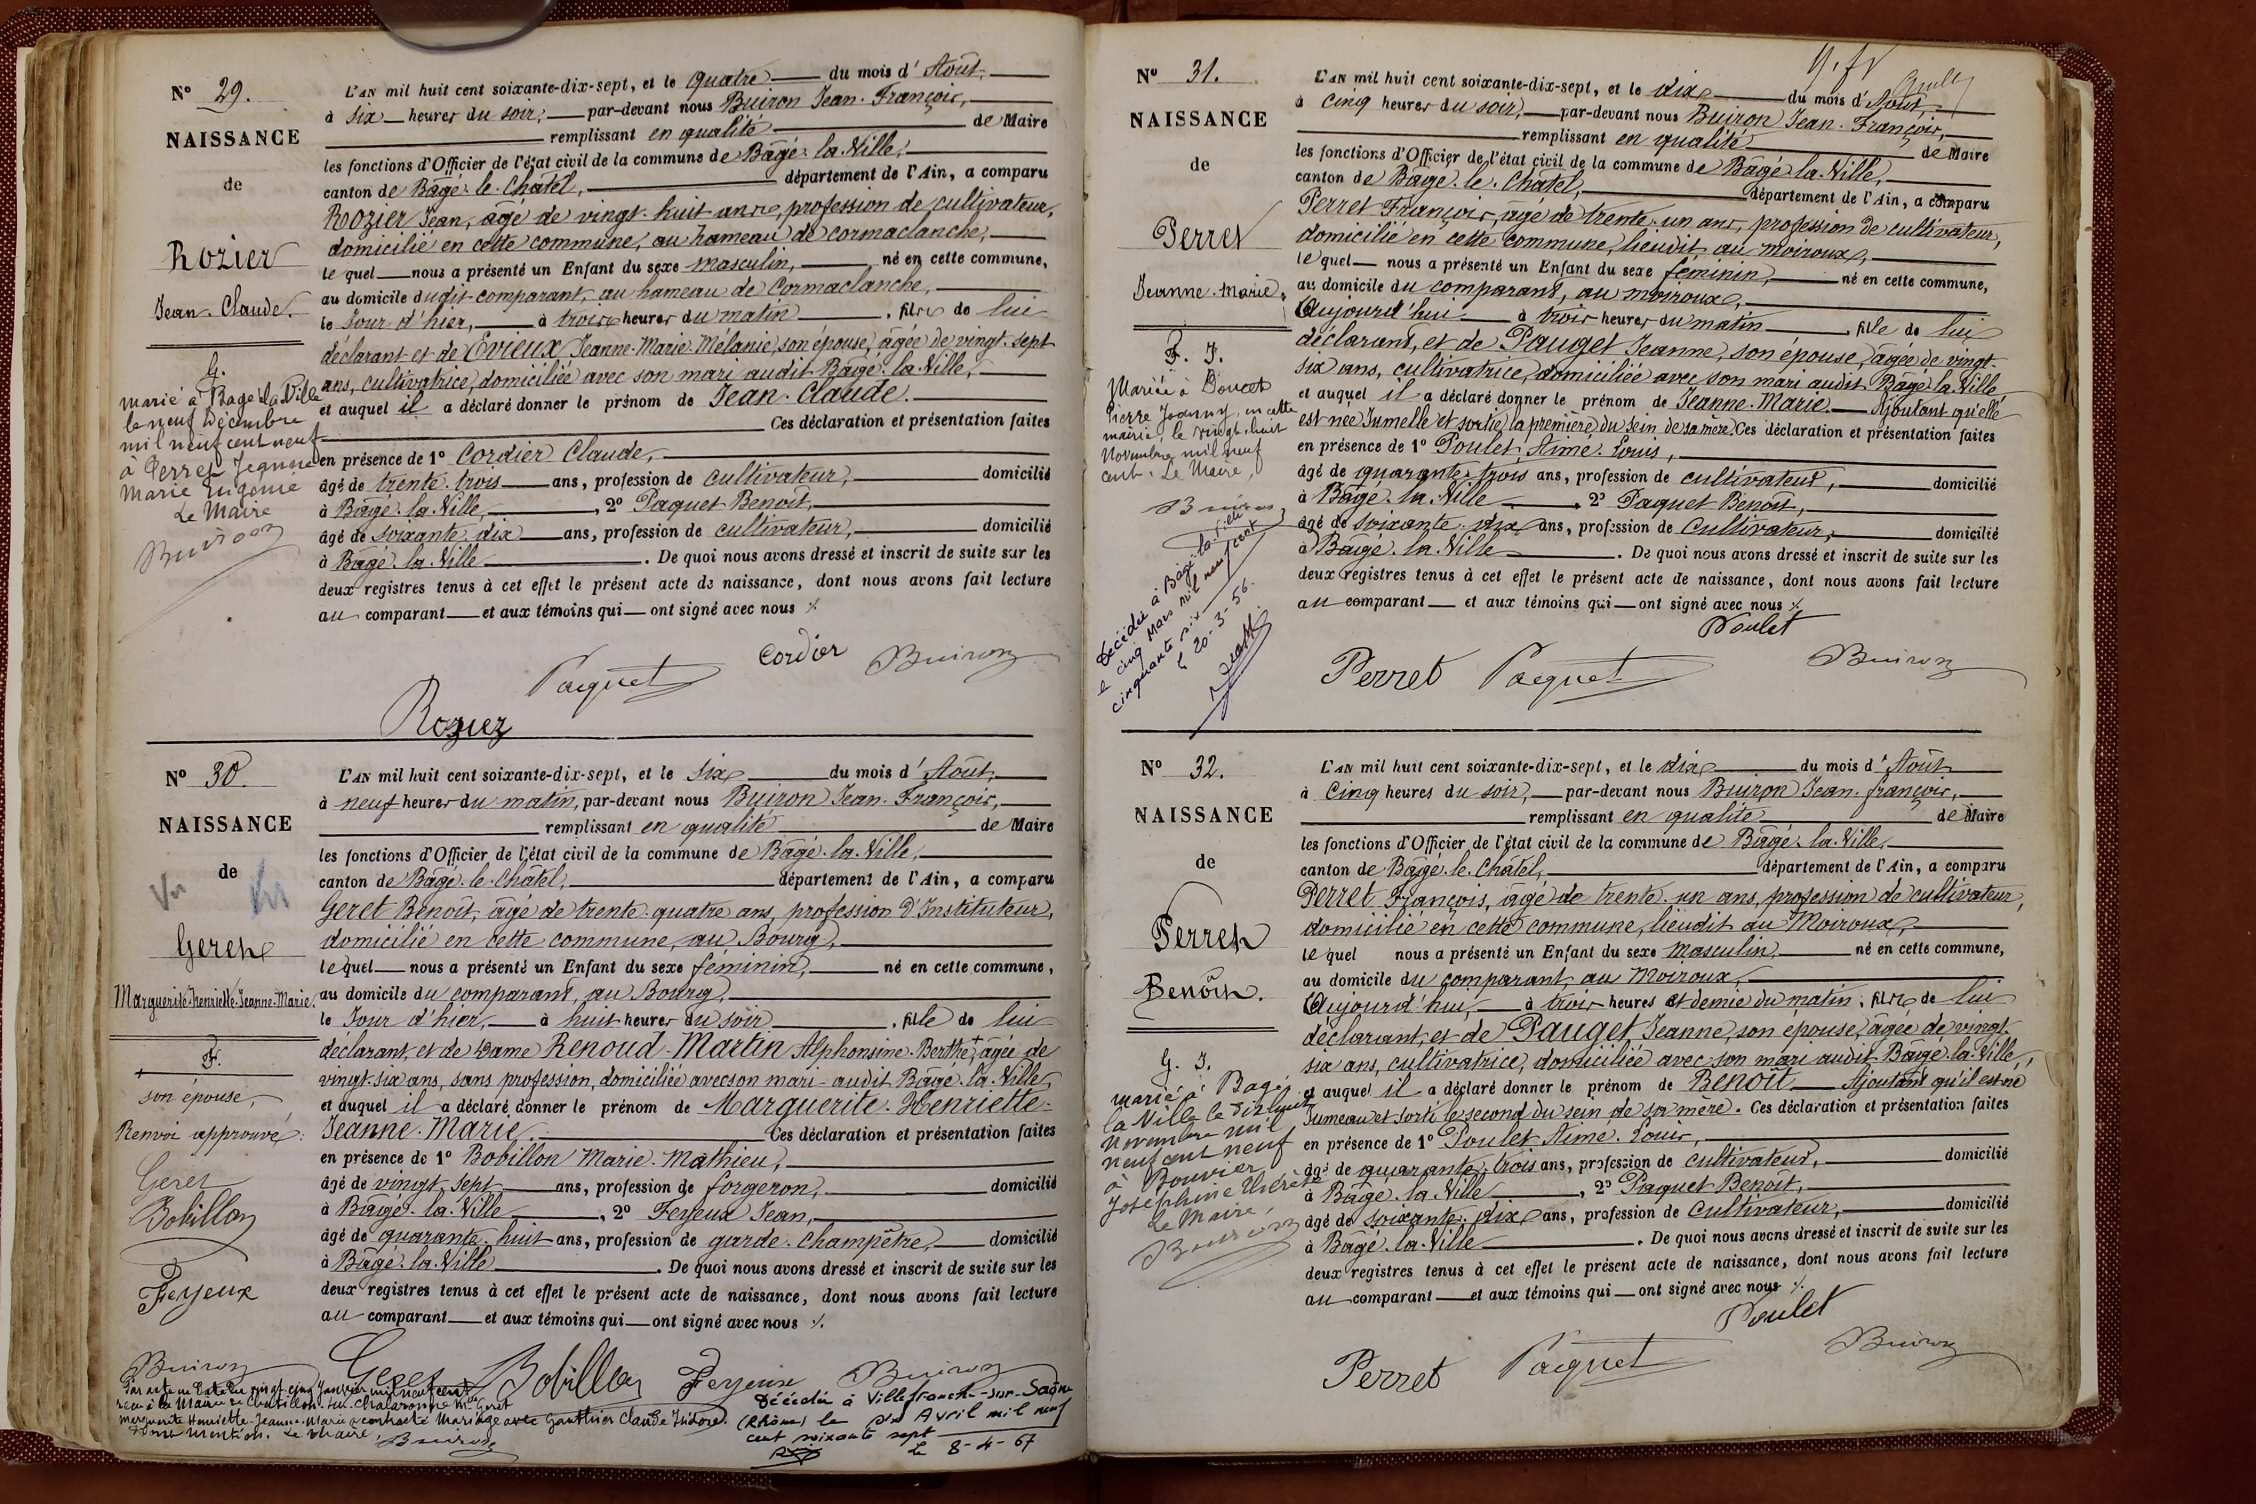 N° 29.
NAISSANCE
de
Rozier
Jean-Claude.
G.
marié à Bagé la Ville
le neuf Décembre
mil neuf cent neuf
à Perret Jeanne
Marie Eugénie
Le Maire
Buiron
L'AN mil huit cent soixante-dix-sept, et le quatre du mois d'Août,
à six heures du soir, par-devant nous Buiron Jean-François,
remplissant en qualité de Maire
les fonctions d'Officier de l'état civil de la commune de Bâgé-la-Ville,
canton de Bâgé-le-Châtel, département de l'Ain, a comparu
Rozier Jean, âgé de vingt-huit ans, profession de cultivateur,
domicilié en cette commune, au hameau de cormaclanche,
lequel nous a présenté un Enfant du sexe masculin, né en cette commune,
au domicile dudit comparant, au hameau de Cormaclanche,
le Jour d'hier, à trois heures du matin, fils de lui
déclarant et de Evieux Jeanne-Marie-Mélanie, son épouse, âgée de vingt-sept
ans, cultivatrice, domiciliée avec son mari audit Bâgé-la-Ville,
et auquel il a déclaré donner le prénom de Jean-Claude.
Ces déclaration et présentation faites
en présence de 1° Cordier Claude,
âgé de trente-trois ans, profession de cultivateur, domicilié
à Bâgé-la-Ville, 2° Paquet Benoit,
âgé de soixante-dix ans, profession de cultivateur, domicilié
à Bâgé-la-Ville. De quoi nous avons dressé et inscrit de suite sur les
deux registres tenus à cet effet le présent acte de naissance, dont nous avons fait lecture
au comparant et aux témoins qui ont signé avec nous
Cordier Buiron
Paquet
Rozier
N° 30.
NAISSANCE
de
Geret
Marguerite-Henriette-Jeanne-Marie.
F.
+
son épouse,
Renvoi approuvé:
Geret
Bobillon
Feyeux
Buiron
L'AN mil huit cent soixante-dix-sept, et le six du mois d'Août,
à neuf heures du matin, par-devant nous Buiron Jean-François,
remplissant en qualité de Maire
les fonctions d'Officier de l'état civil de la commune de Bâgé-la-Ville,
canton de Bâgé-le-Châtel, département de l'Ain, a comparu
Geret Benoît, âgé de trente-quatre ans, profession d'Instituteur,
domicilié en cette commune, au Bourg,
lequel nous a présenté un Enfant du sexe féminin, né en cette commune,
au domicile du comparant, au Bourg,
le Jour d'hier, à huit heures du soir, fille de lui
déclarant, et de Dame Renoud-Martin Alphonsine-Berthe, + âgée de
vingt-six ans, sans profession, domiciliée avec son mari audit Bâgé-la-Ville,
et auquel il a déclaré donner le prénom de Marguerite-Henriette-
Jeanne-Marie. Ces déclaration et présentation faites
en présence de 1° Bobillon Marie-Mathieu,
âgé de vingt-sept ans, profession de forgeron, domicilié
à Bâgé-la-Ville, 2° Feyeux Jean,
âgé de quarante-huit ans, profession de garde-champêtre, domicilié
à Bâgé-la-Ville. De quoi nous avons dressé et inscrit de suite sur les
deux registres tenus à cet effet le présent acte de naissance, dont nous avons fait lecture
au comparant et aux témoins qui ont signé avec nous
Geret Bobillon Feyeux Buiron
Par acte en date du vingt-cinq Janvier mil neuf cent
reçu à la Mairie de Chatillon-sur-Chalaronne Mlle Geret
Marguerite Henriette-Jeanne-Marie a contracté Mariage avec Gauthier Claude Isidore.
Dont Mention. Le Maire,
Buiron
Décédée à Villefranche-sur-Saône
(Rhône) le six Avril mil neuf
cent soixante sept
Le 8-4-67
N° 31.
NAISSANCE
de
Perret
Jeanne-Marie.
F. J.
Mariée à Doucet
Pierre Joanny, en cette
mairie, le vingt-huit
Novembre mil neuf
cent. Le Maire,
Buiron
Décédée à Bâgé-la-Ville
le cinq Mars mil neuf cent
cinquante six
le 20-3-56.
L'AN mil huit cent soixante-dix-sept, et le dix du mois d'Août,
à cinq heures du soir, par-devant nous Buiron Jean-François,
remplissant en qualité de Maire
les fonctions d'Officier de l'état civil de la commune de Bâgé-la-Ville,
canton de Bâgé-le-Châtel, département de l'Ain, a comparu
Perret François, âgé de trente-un ans, profession de cultivateur,
domicilié en cette commune, lieudit au moiroux,
lequel nous a présenté un Enfant du sexe féminin, né en cette commune,
au domicile du comparant, au moiroux,
Aujourd'hui à trois heures du matin, fille de lui
déclarant, et de Pauget Jeanne, son épouse, âgée de vingt-
six ans, cultivatrice, domiciliée avec son mari audit Bâgé-la-Ville
et auquel il a déclaré donner le prénom de Jeanne-Marie. Ajoutant qu'elle
est née Jumelle et sortie la première du sein de sa mère. Ces déclaration et présentation faites
en présence de 1° Poulet Aimé-Louis,
âgé de quarante-trois ans, profession de cultivateur, domicilié
à Bâgé-la-Ville, 2° Paquet Benoît,
âgé de soixante-dix ans, profession de cultivateur, domicilié
à Bâgé-la-Ville. De quoi nous avons dressé et inscrit de suite sur les
deux registres tenus à cet effet le présent acte de naissance, dont nous avons fait lecture
au comparant et aux témoins qui ont signé avec nous
Poulet
Perret Paquet Buiron
N° 32.
NAISSANCE
de
Perret
Benoît.
G. J.
marié à Bagé
la Ville le dix huit
novembre mil
neuf cent neuf
à Bouvier
Joséphine Thérèse
Le Maire,
Buiron
L'AN mil huit cent soixante-dix-sept, et le dix du mois d'Août
à cinq heures du soir, par-devant nous Buiron Jean-françois,
remplissant en qualité de Maire
les fonctions d'Officier de l'état civil de la commune de Bâgé-la-Ville,
canton de Bâgé-le-Châtel, département de l'Ain, a comparu
Perret François, âgé de trente-un ans, profession de cultivateur,
domicilié en cette commune, lieudit au Moiroux,
lequel nous a présenté un Enfant du sexe masculin, né en cette commune,
au domicile du comparant, au Moiroux,
Aujourd'hui, à trois heures et demie du matin, fils de lui
déclarant, et de Pauget Jeanne, son épouse, âgée de vingt-
six ans, cultivatrice, domiciliée avec son mari audit Bâgé-la-Ville,
et auquel il a déclaré donner le prénom de Benoît. Ajoutant qu'il est né
Jumeau et sorti le second du sein de sa mère. Ces déclaration et présentation faites
en présence de 1° Poulet Aimé-Louis,
âgé de quarante-trois ans, profession de cultivateur, domicilié
à Bâgé-la-Ville, 2° Paquet Benoît,
âgé de soixante-dix ans, profession de cultivateur, domicilié
à Bâgé-la-Ville. De quoi nous avons dressé et inscrit de suite sur les
deux registres tenus à cet effet le présent acte de naissance, dont nous avons fait lecture
au comparant et aux témoins qui ont signé avec nous
Poulet
Perret Paquet Buiron